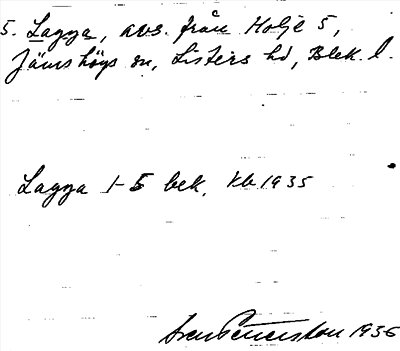 5. Lagga, avs. från Holje 5,
Jämshögs sn, Listers hd, Blek. l.
Lagga 1-5 bek. Kb 1935
1936